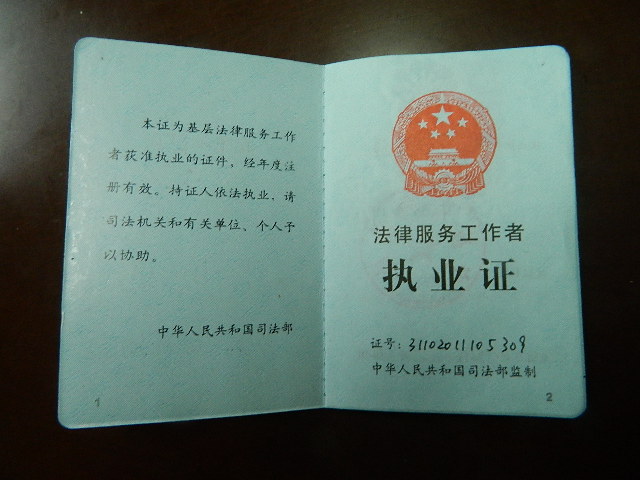 本证为基层法律服务工作
者获准执业的证件，经年度注
册有效。持证人依法执业，请
司法机关和有关单位、个人予
以协助。
中华人民共和国司法部
1
法律服务工作者
执业证
证号：31102011105309
中华人民共和国司法部监制
2